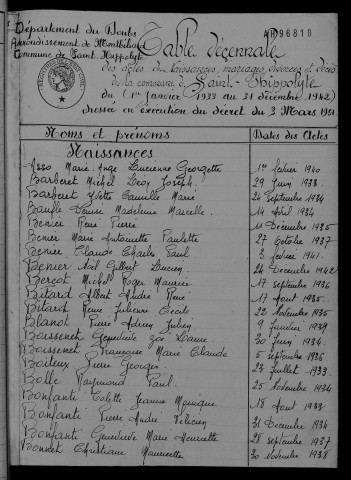 Département du Doubs
Arrondissement de Montbéliard
Commune de Saint-Hippolyte
Table Décennale
des actes de Naissances, mariages, divorces et décès
de la commune de Saint-Hippolyte
du (1er janvier 1933 au 31 décembre 1942)
dressée en exécution du décret du 3 Mars 1951
Noms et prénoms Dates des Actes
Naissances
Asso Marie Ange Lucienne Georgette 1er février 1940
Barberet Michel Léon Joseph 29 Juin 1933
Barberet Yvette Camille Marie 24 septembre 1934
Baufle Denise Madeleine Marcelle 14 Avril 1934
Benier René Pierre 11 Décembre 1935
Benier Marie Antoinette Paulette 27 Octobre 1937
Benier Claude Charles Paul 3 février 1941
Benier Noël Gilbert Lucien 24 Décembre 1942
Berçot Michel Roger Maurice 17 septembre 1936
Bitard Albert André René 17 Août 1935
Bitard Julienne Cécile 22 Novembre 1935
Blanot Pierre Julien 9 Janvier 1939
Boissenet Geneviève 30 Juin 1934
Boissenet Françoise Marie Claude 5 septembre 1936
Boiteux Pierre Georges 23 Juillet 1933
Bolle Raymond Paul 25 Novembre 1934
Bonfanti Colette Jeanne Monique 18 Août 1933
Bonfanti Pierre André 31 Décembre 1934
Bonfanti Geneviève Marie Henriette 28 septembre 1937
Bonnet Christiane Mauricette 30 Novembre 1938